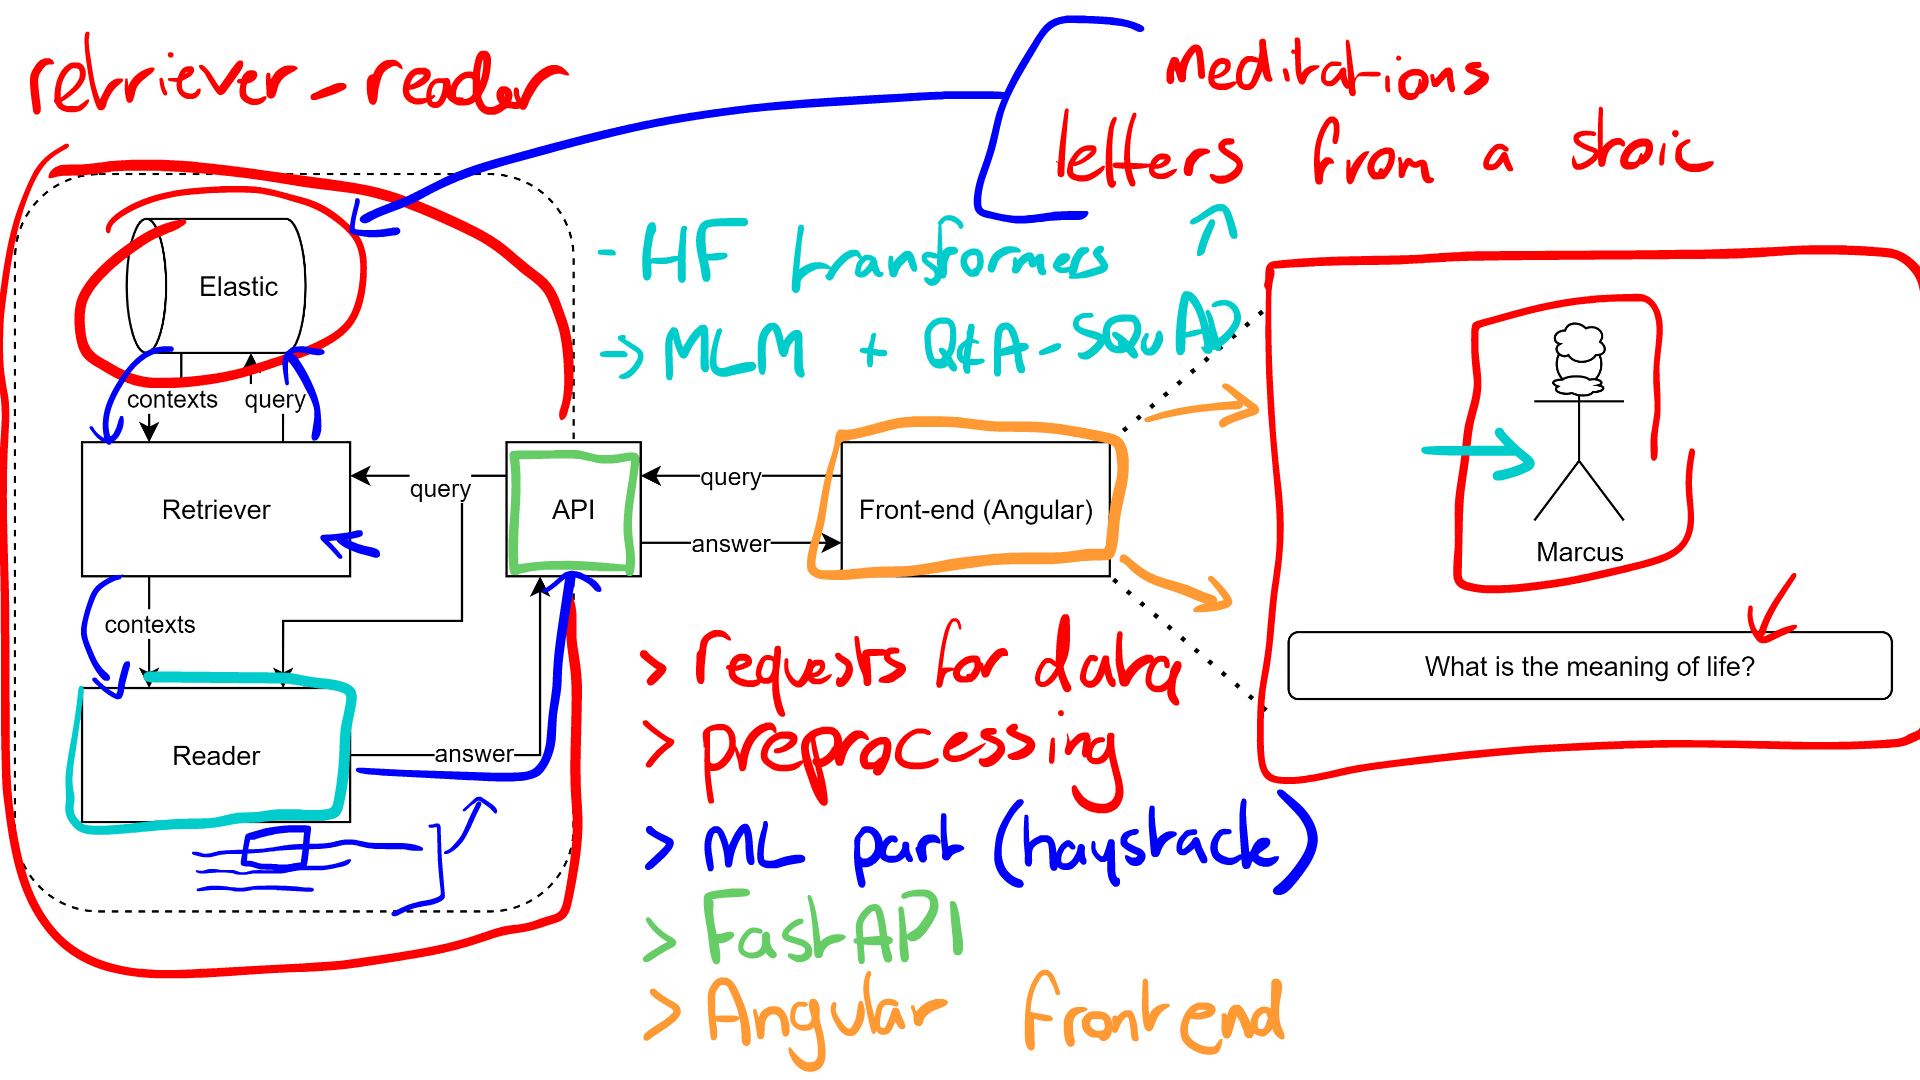 retriever-reader
meditations
letters from a stoic
- HF transformers
→ MLM + Q&A - SQuAD
Elastic
contexts
query
Retriever
query
API
query
answer
Front-end (Angular)
Marcus
What is the meaning of life?
contexts
Reader
answer
> requests for data
> preprocessing
> ML part (haystack)
> FastAPI
> Angular front end